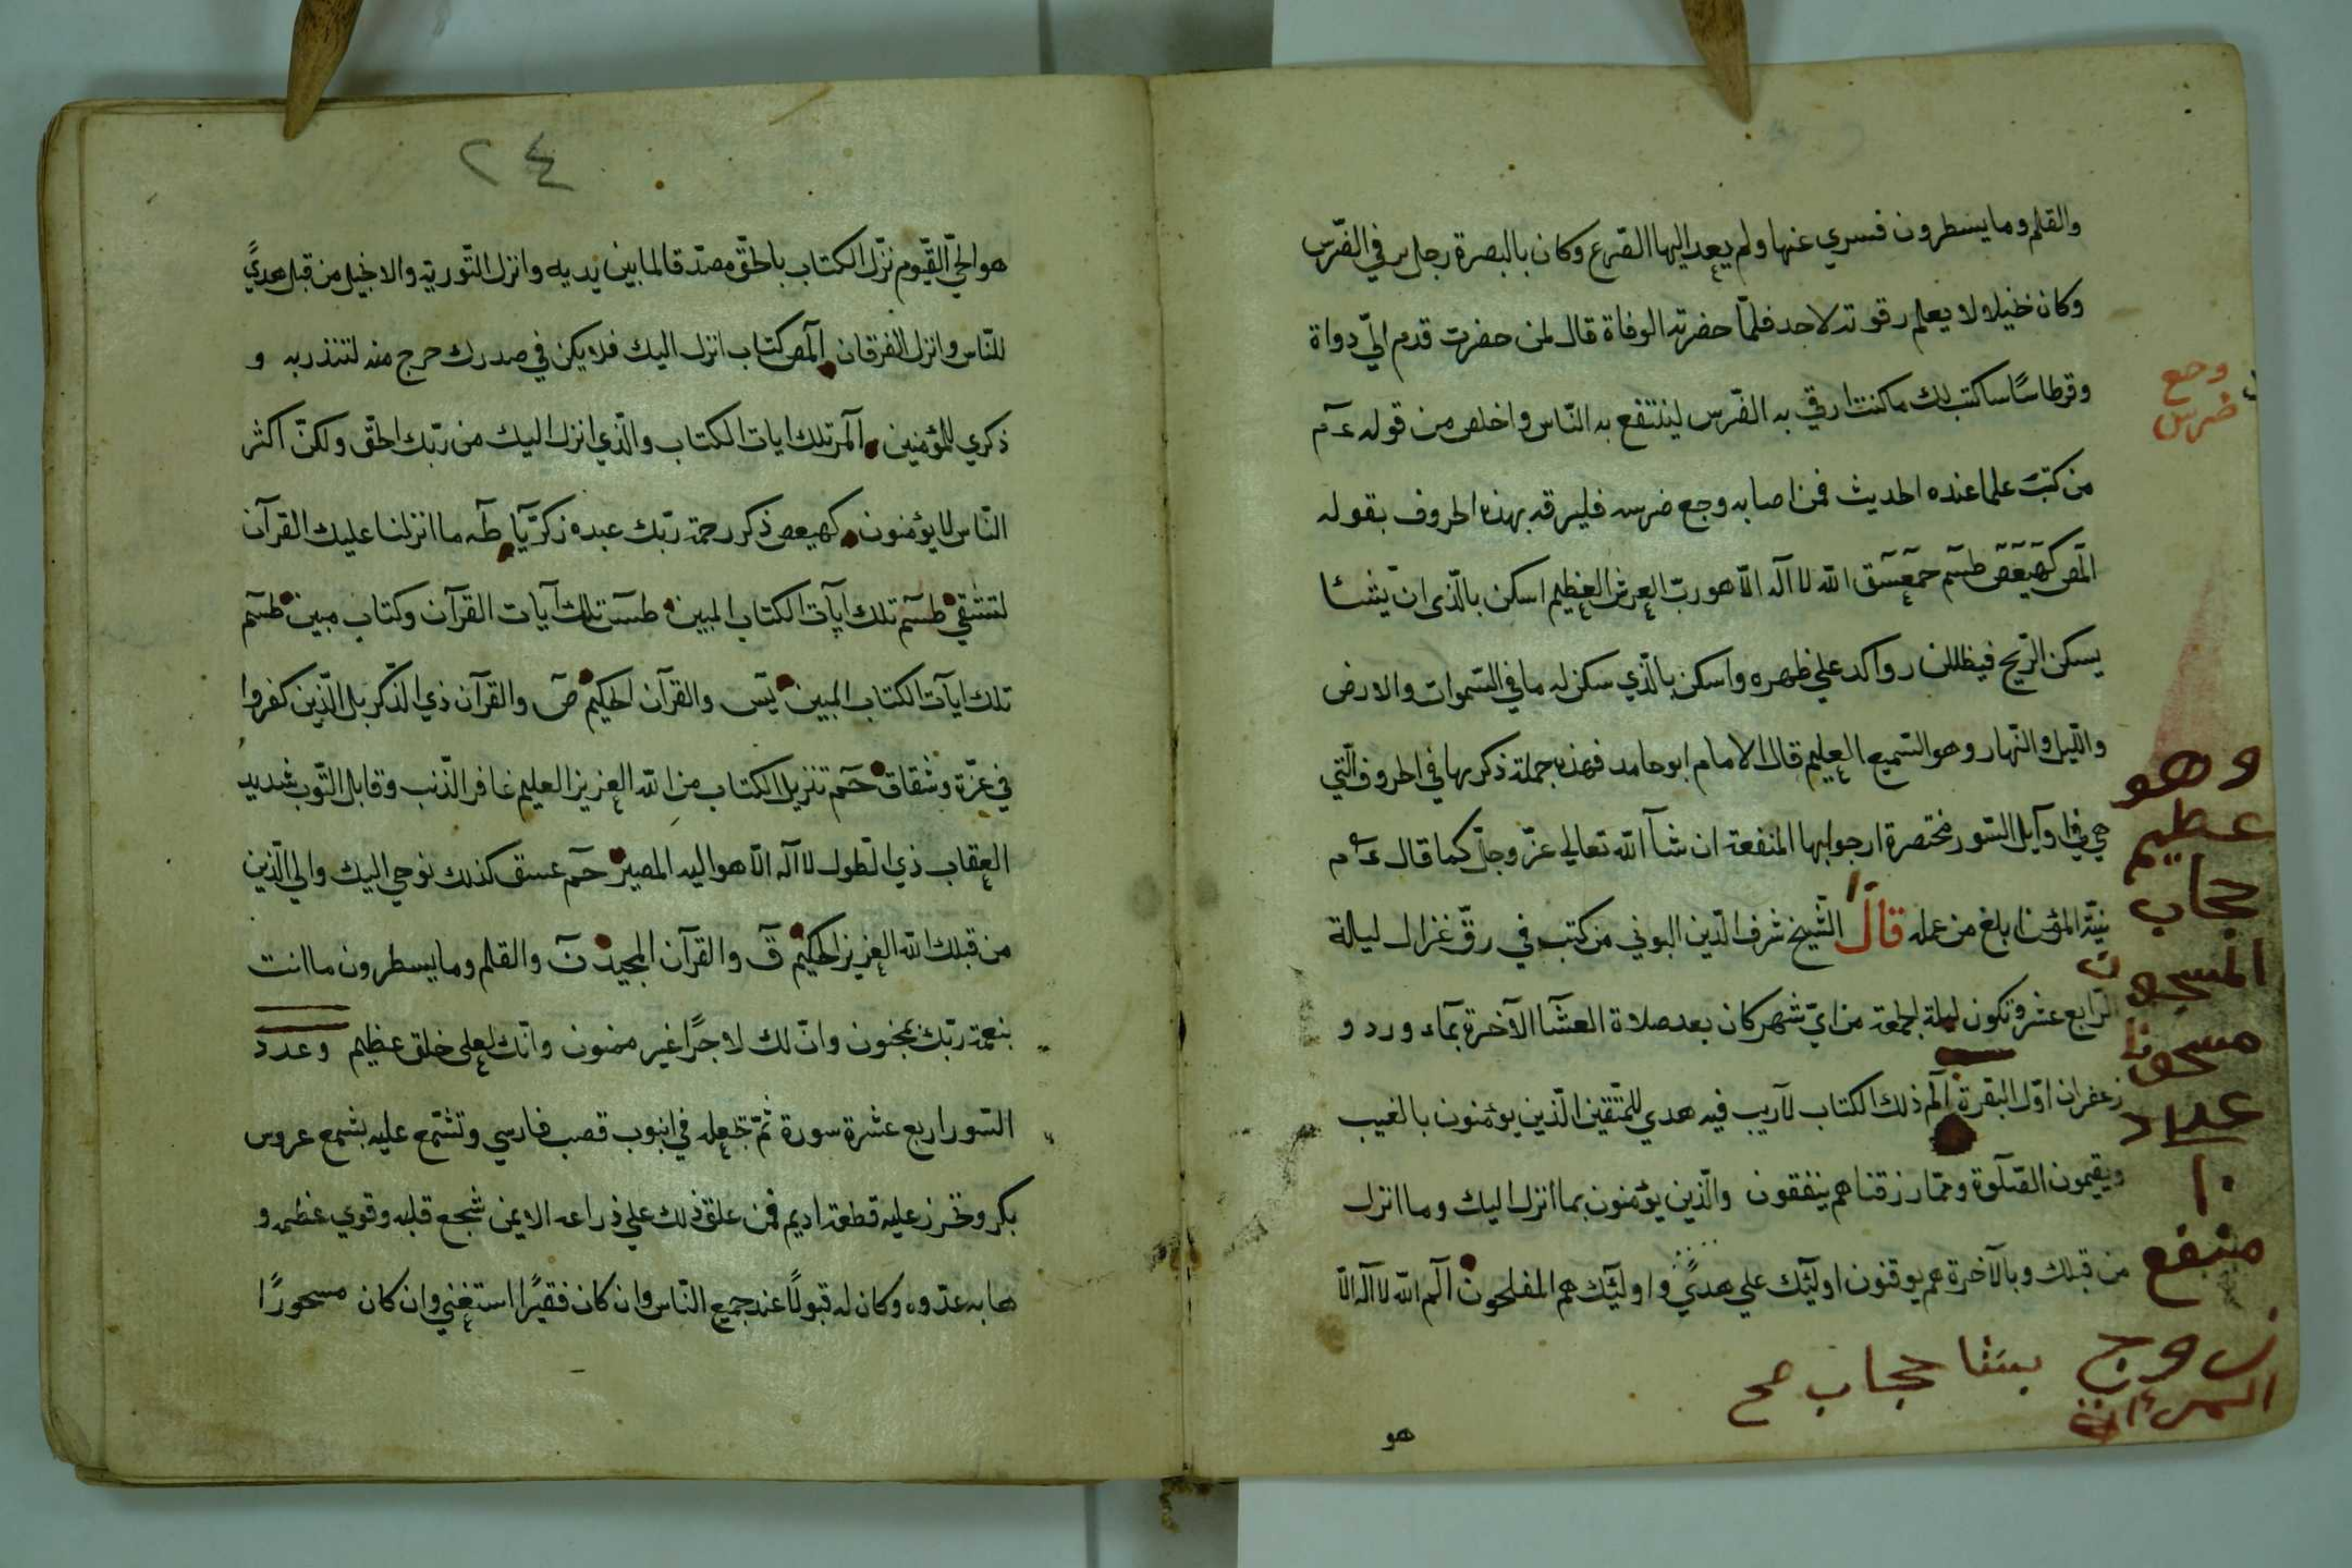 والقلم وما يسطرون فسري عنها ولم يعد اليها الصّرع وكان بالبصرة رجل يرقي الضّرس
وكان بخيلا لا يعلم رقوته لاحد فلمّا حضرته الوفاة قال لمن حضرت قدم اليّ دواة
وقرطاسًا ساكتب لك ما كنت ارقي به الضّرس لينتفع به النّاس واخلص من قوله عم
من كتب علما عنده الحديث فمن اصابه وجع ضرسه فليرقه بهذه الحروف بقوله
المص كهيعص طسم حمعسق الله لا اله الّا هو ربّ العرش العظيم اسكن بالّذي ان يشا
يسكن الرّيح فيظللن رواكد علي ظهره واسكن بالّذي سكن له ما في السّموات والارض
واللّيل والنّهار وهو السّميع العليم قال الامام ابو حامد فهذه جملة ذكرها في الحروف الّتي
هي في اوآيل السّور مختصرة ارجوا بها المنفعة ان شآ الله تعالي عزّ وجلّ كما قال عم
نيّة المؤمن ابلغ من عمله قال الشّيخ شرف الدّين البوني من كتب في رقّ غزال ليلة
الرّابع عشر وتكون ليلة الجمعة من ايّ شهر كان بعد صلاة العشآ الآخرة بمآء ورد و
زعفران اوّل البقرة الم ذلك الكتاب لا ريب فيه هدي للمتّقين الّذين يؤمنون بالغيب
ويقيمون الصّلوة وممّا رزقناهم ينفقون والّذين يؤمنون بما انزل اليك وما انزل
من قبلك وبالآخرة هم يوقنون اوليّك علي هديً واوليّك هم المفلحون الم الله لا اله الّا
هو
وجع
ضرس
وهو
عظيم
حجاب
المسجون
مسجون
عداد
١٠
منفع
زوج
بسنا حجاب صح
٢٤
هو الحيّ القيّوم نزّل الكتاب بالحقّ مصدّقا لما بين يديه وانزل التّورية والانجيل من قبل هديً
للنّاس وانزل الفرقان المص كتاب انزل اليك فلا يكن في صدرك حرج منه لتنذر به و
ذكري للمؤمنين المر تلك ايات الكتاب والّذي انزل اليك من ربّك الحقّ ولكنّ اكثر
النّاس لا يؤمنون كهيعص ذكر رحمة ربّك عبده زكريّا طه ما انزلنا عليك القرآن
لتشقي طسم تلك ايآت الكتاب المبين طس تلك آيات القرآن وكتاب مبين طسم
تلك ايآت الكتاب المبين يس والقرآن الحكيم ص والقرآن ذي الذّكر بل الّذين كفروا
في عزّة وشقاق حم تنزيل الكتاب من الله العزيز العليم غافر الذّنب وقابل التّوب شديد
العقاب ذي الطّول لا اله الّا هو اليه المصير حم عسق كذلك نوحي اليك والي الّذين
من قبلك الله العزيز الحكيم ق والقرآن المجيد ن والقلم وما يسطرون ما انت
بنعمة ربّك بمجنون وانّ لك لاجرًا غير ممنون وانّك لعلي خلق عظيم وعدد
السّور اربع عشرة سورة ثمّ تجعله في انبوب قصب فارسي وتشمّع عليه بشمع عروس
بكر وتخرز عليه قطعة اديم فمن علق ذلك علي ذراعه الايمن شجع قلبه وقوي عظمه و
هابه عدّوه وكان له قبولًا عند جميع النّاس وان كان فقيرًا استغني وان كان مسحورًا